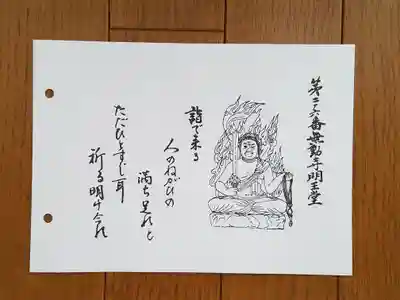 第二六番無動寺明王堂
詣で来る
人のねがひの
満ち足れと
ただひとすじ耳
祈る明け合れ